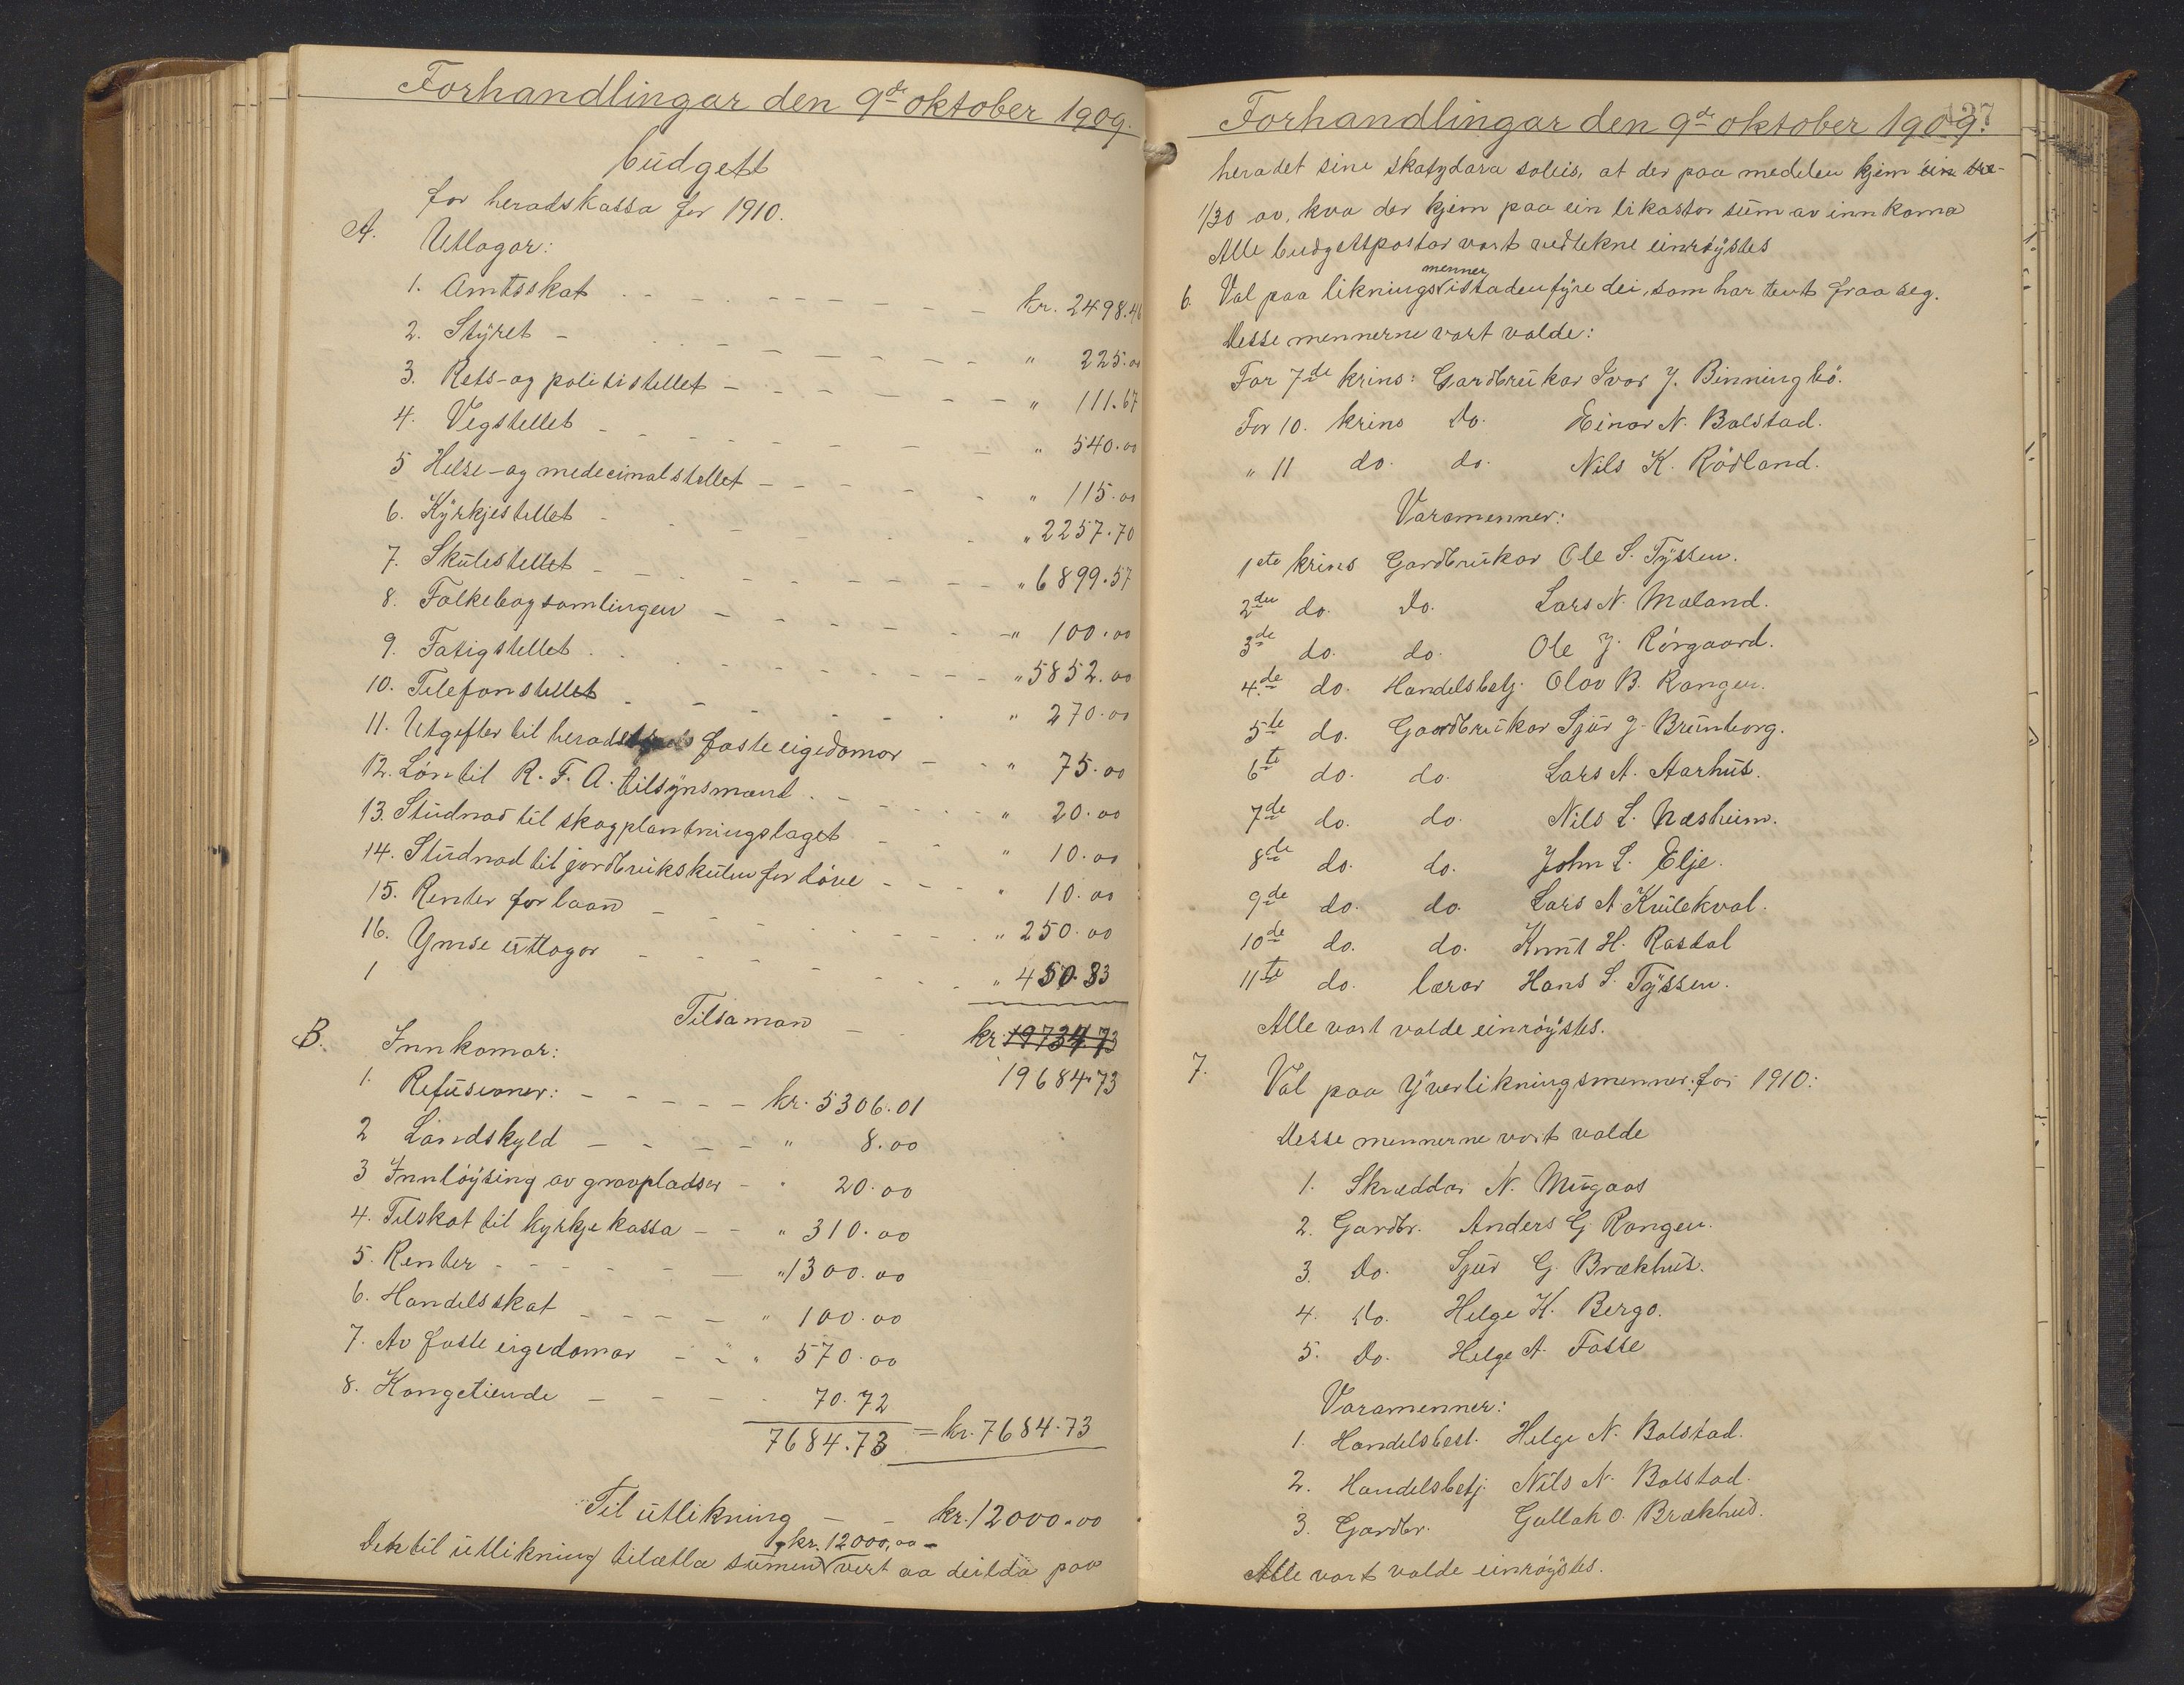 Forhandlingar den 9de oktober 1909.
budgett
for heradskassa for 1910.
A. Utlogor:
1. Amtsskat - - - kr. 2498.46
2. Styret - - - " 225.00
3. Rets- og politistellet - - - " 111.67
4. Vegstellet - - - " 540.00
5 Helse- og medecinalstellet - - - " 115.00
6. Kyrkjestellet - - - " 2257.70
7. Skulestellet - - - " 6899.57
8. Folkebogsamlingen - - - " 100.00
9. Fatigstellet - - - " 5852.00
10. Telefonstellet - - - " 270.00
11. Utgifter til herads faste eigedomar - - " 75.00
12. Løn til R. F. A. tilsynsmand - - - " 20.00
13. Studnad til skogplantningslaget - - " 10.00
14. Studnad til jordbrukskulen for døve - - - " 10.00
15. Renter for laan - - - " 250.00
16. Ymse utlogor - - - " 450.83
1
Tilsaman - - kr. 19734.73
19684.73
B. Innkomor:
1. Refusioner: - - - kr. 5306.01
2 Landskyld - - - " 8.00
3 Innløysing av gravpladser - " 20.00
4. Tilskot til kyrkjekassa - - " 310.00
5. Renter - - - " 1300.00
6. Handelsskat - - - " 100.00
7. Av faste eigedomar - - " 570.00
8. Kongetiende - - - 70.72
7684.73 = kr. 7684.73
Til utlikning - - kr. 12000.00
kr. 12000,00 -
Den til utlikning tilætla sumen vert aa deilda paa
137
Forhandlingar den 9de oktober 1909.
heradet sine skatydara soleis, at der paa medelen kjem ein tre-
1/30 av, kva der kjem paa ein likastor sum av innkoma
Alle budgettpostar vart vedtekne einrøystes
menner
6. Val paa liknings istaden fyre dei, som har tent fraa seg.
Desse mennerne vart valde:
For 7de krins: Gardbrukar Ivar J. Binningbø.
For 10. krins do. Einar N. Bolstad.
" 11 do. do. Nils K. Rødland.
Varamenner:
1ste krins Gardbrukar Ole S. Tyssen.
2den do. do. Lars N. Maland.
3de do. do. Ole J. Rørgaard.
4de do. Handelsbetj. Olav B. Rongen.
5te do. Gardbrukar Sjur J. Brunborg.
6te do. do. Lars A. Aarhus.
7de do. do. Nils L. Næsheim.
8de do. do. John L. Elje.
9de do. do. Lars A Kulekval.
10de do. do. Knut H. Rastal
11te do. lærar Hans S. Tyssen.
Alle vart valde einrøystes.
7. Val paa yverlikningsmenner for 1910:
Desse mennerne vart valde
1. Skræddar N. Mugaas
2. Gardbr. Anders G Rongen.
3. Do. Sjur G. Brækhus.
4. Do. Helge K. Bergo.
5. Do. Helge A. Fosse
Varamenner:
1. Handelsbest. Helge N. Bolstad.
2. Handelsbetj. Nils N. Bolstad.
3. Gardbr. Gullak O. Brækhus.
Alle vart valde einrøystes.